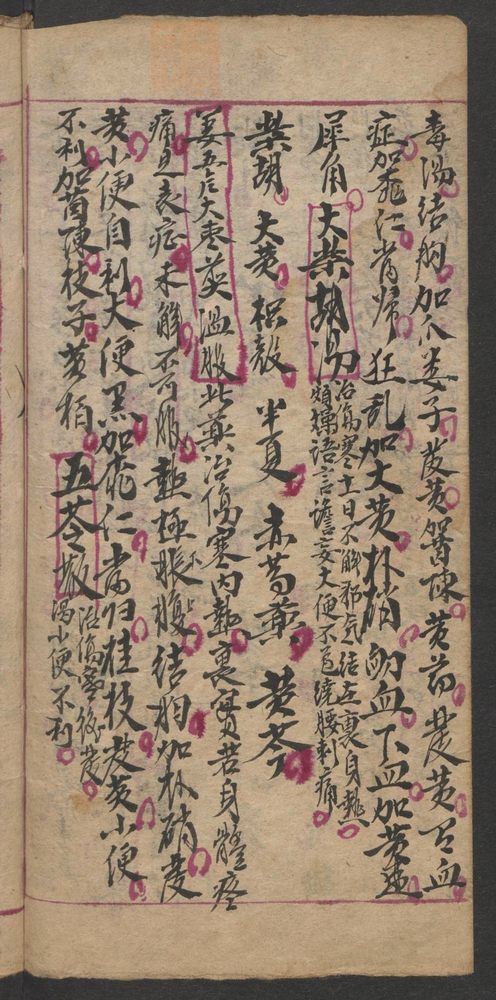 毒湯結胸加瓜蔞子茛黃發陳黃芩茛黃下血
症加桃仁當歸狂乱加大黃朴硝衂血下血加黃連
犀角
大柴胡湯
治傷寒十日不解邪氣結在裏身熱
煩燥語言譫妄大便不通繞腰刺痛
柴胡大黃枳殼半夏赤芍藥黃芩
姜五片大枣煎溫服此藥治傷寒內熱裏實若身體疼
痛是表症未解不可服熱極脹腹結胸加朴硝發
黃小便自利大便黑加桃仁當归桂枝發黃小便
不利加茵陳枝子黃栢
五苓散
治傷寒後發
渴小便不利